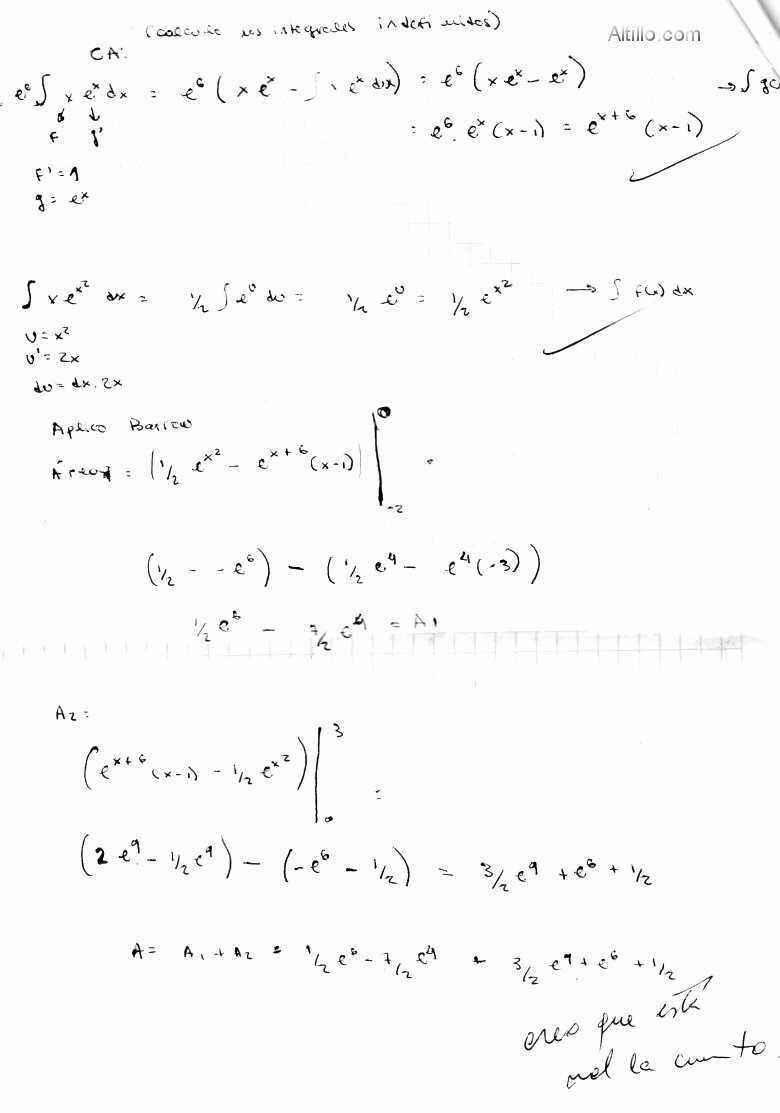 (calculo las integrales indefinidas)
Altillo.com
CA:
e⁶∫ x eˣ dx = e⁶ ( x eˣ - ∫ 1 eˣ dx) = e⁶ (x eˣ - eˣ) → ∫ g(
↓ ↓
F g' = e⁶. eˣ (x-1) = eˣ⁺⁶ (x-1)
F' = 1
g = eˣ
∫ x eˣ² dx = 1/2 ∫ eᵁ du = 1/2 eᵁ = 1/2 eˣ² → ∫ f(x) dx
U = x²
U' = 2x
dU = dx. 2x
Aplico Barrow
Área1 = (1/2 eˣ² - eˣ⁺⁶ (x-1)) | 0 -2 =
(1/2 - - e⁶) - (1/2 e⁴ - e⁴ (-3))
1/2 e⁶ - 7/2 e⁴ = A1
A2 =
(eˣ⁺⁶ (x-1) - 1/2 eˣ²) | 3 0 =
(2 e⁹ - 1/2 e⁹) - (-e⁶ - 1/2) = 3/2 e⁹ + e⁶ + 1/2
A = A1 + A2 = 1/2 e⁶ - 7/2 e⁴ + 3/2 e⁹ + e⁶ + 1/2
creo que está
mal la cuenta.